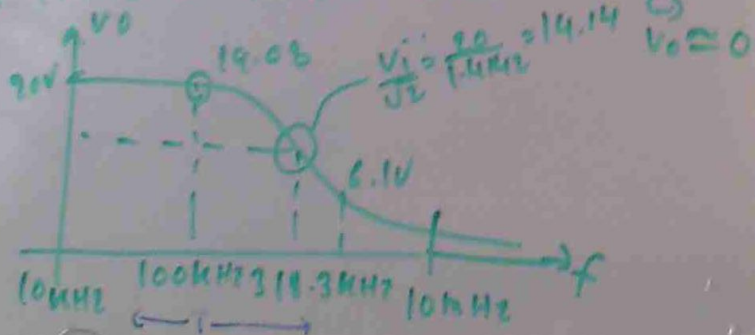 V0
19.08
Vi/√2 = 20/1.4142 = 14.14
V0 ≃ 0
20V
6.1V
f
10KHz
100KHz
318.3KHz
10MHz